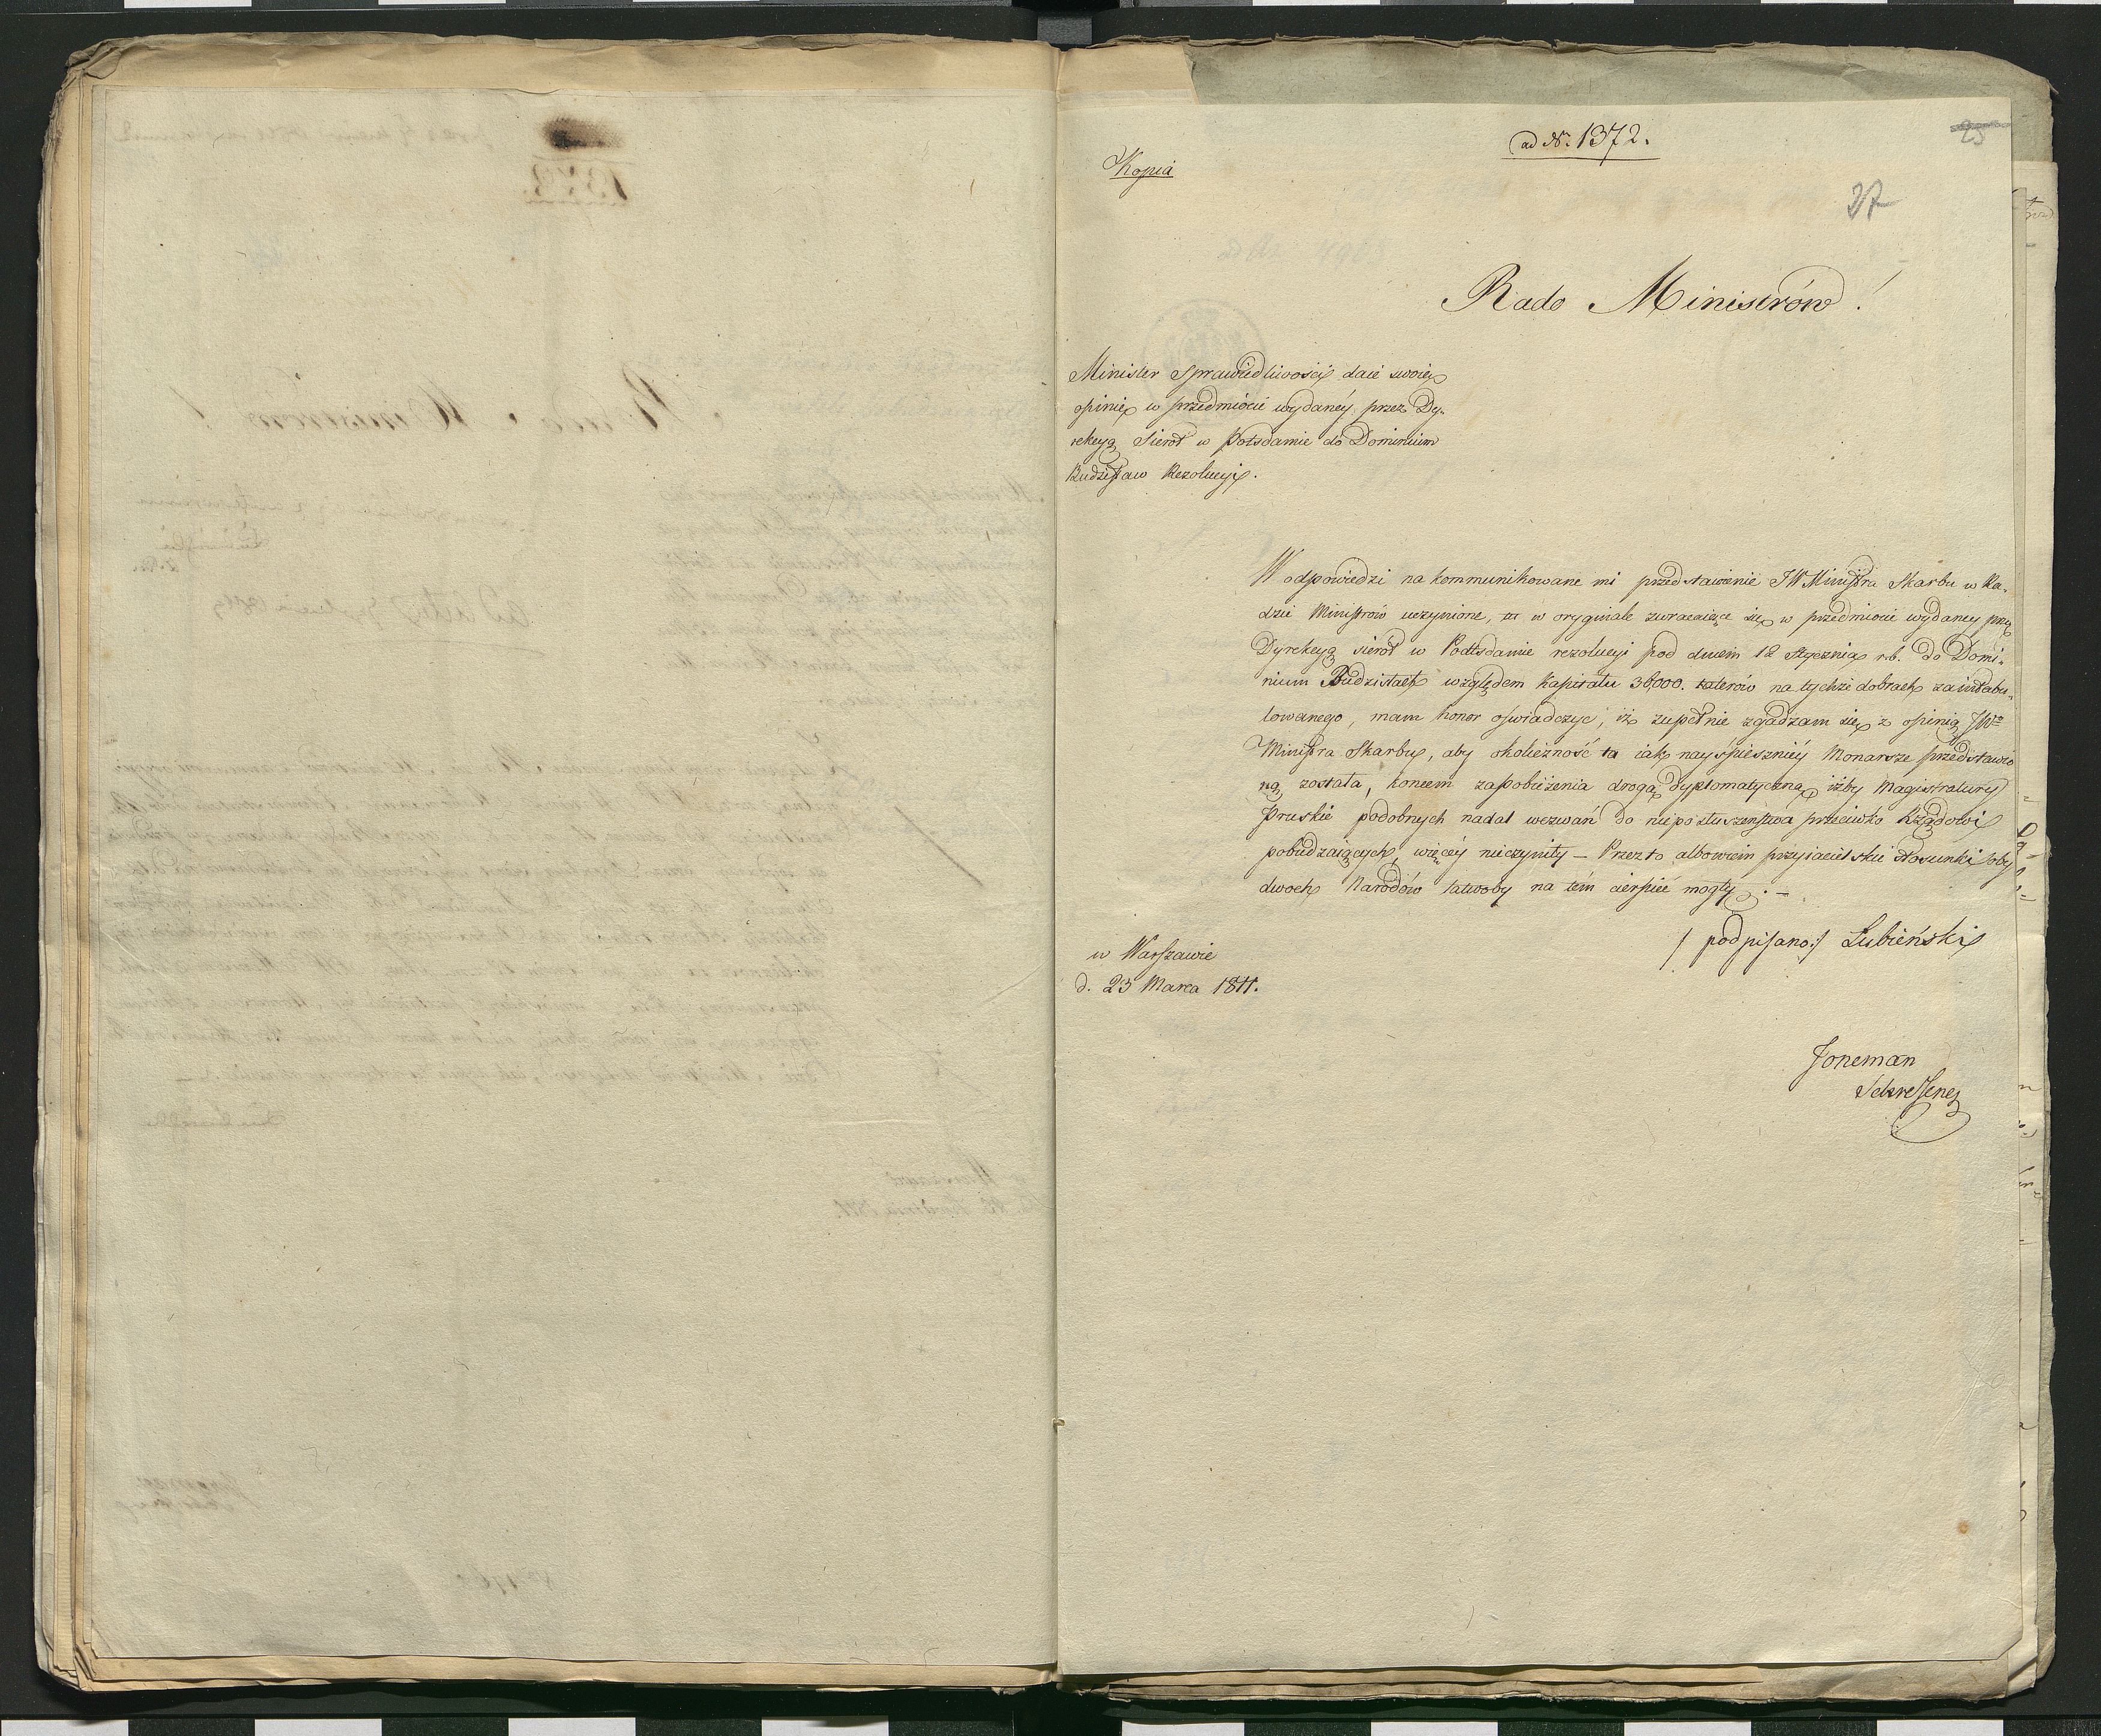 ad Nr. 1372.
25
Kopia
27
Rado Ministrów!
Minister Sprawiedliwości daie swoię
opinię w przedmiocie wydanéy przez Dy-
rekcyą Sierot w Potsdamie do Dominium
Budzisław Rezolucyi.
W odpowiedzi na kommunikowane mi przedstawienie JW Ministra Skarbu w Ra-
dzie Ministrów uczynione, tu w oryginale zwracaiące się w przedmiocie wydaney przez
Dyrekcyą sierót w Podtsdamie rezolucyi pod dniem 12 Stycznia r.b. do Domi-
nium Budzisław względem kapitału 36,000. talerów na tychże dobrach zaintabu-
lowanego, mam honor oświadczyć, iż zupełnie zgadzam się z opinią JWo
Ministra Skarbu, aby okoliczność ta iak nayśpieszniéy Monarsze przedstawio
ną została, koncem zapobieżenia drogą dyplomatyczną iżby Magistratury
Pruskie podobnych nadal wezwań do nieposłuszeństwa przeciwko Rządowi
pobudzaiących, więcéy nieczyniły – Przez to albowiem przyiacielskie stosunki oby
dwoch Narodów łatwoby na tém cierpieć mogły. –
/ podpisano:/ Lubieński
w Warszawie
d. 23 Marca 1811.
Joneman
Sekre Jene